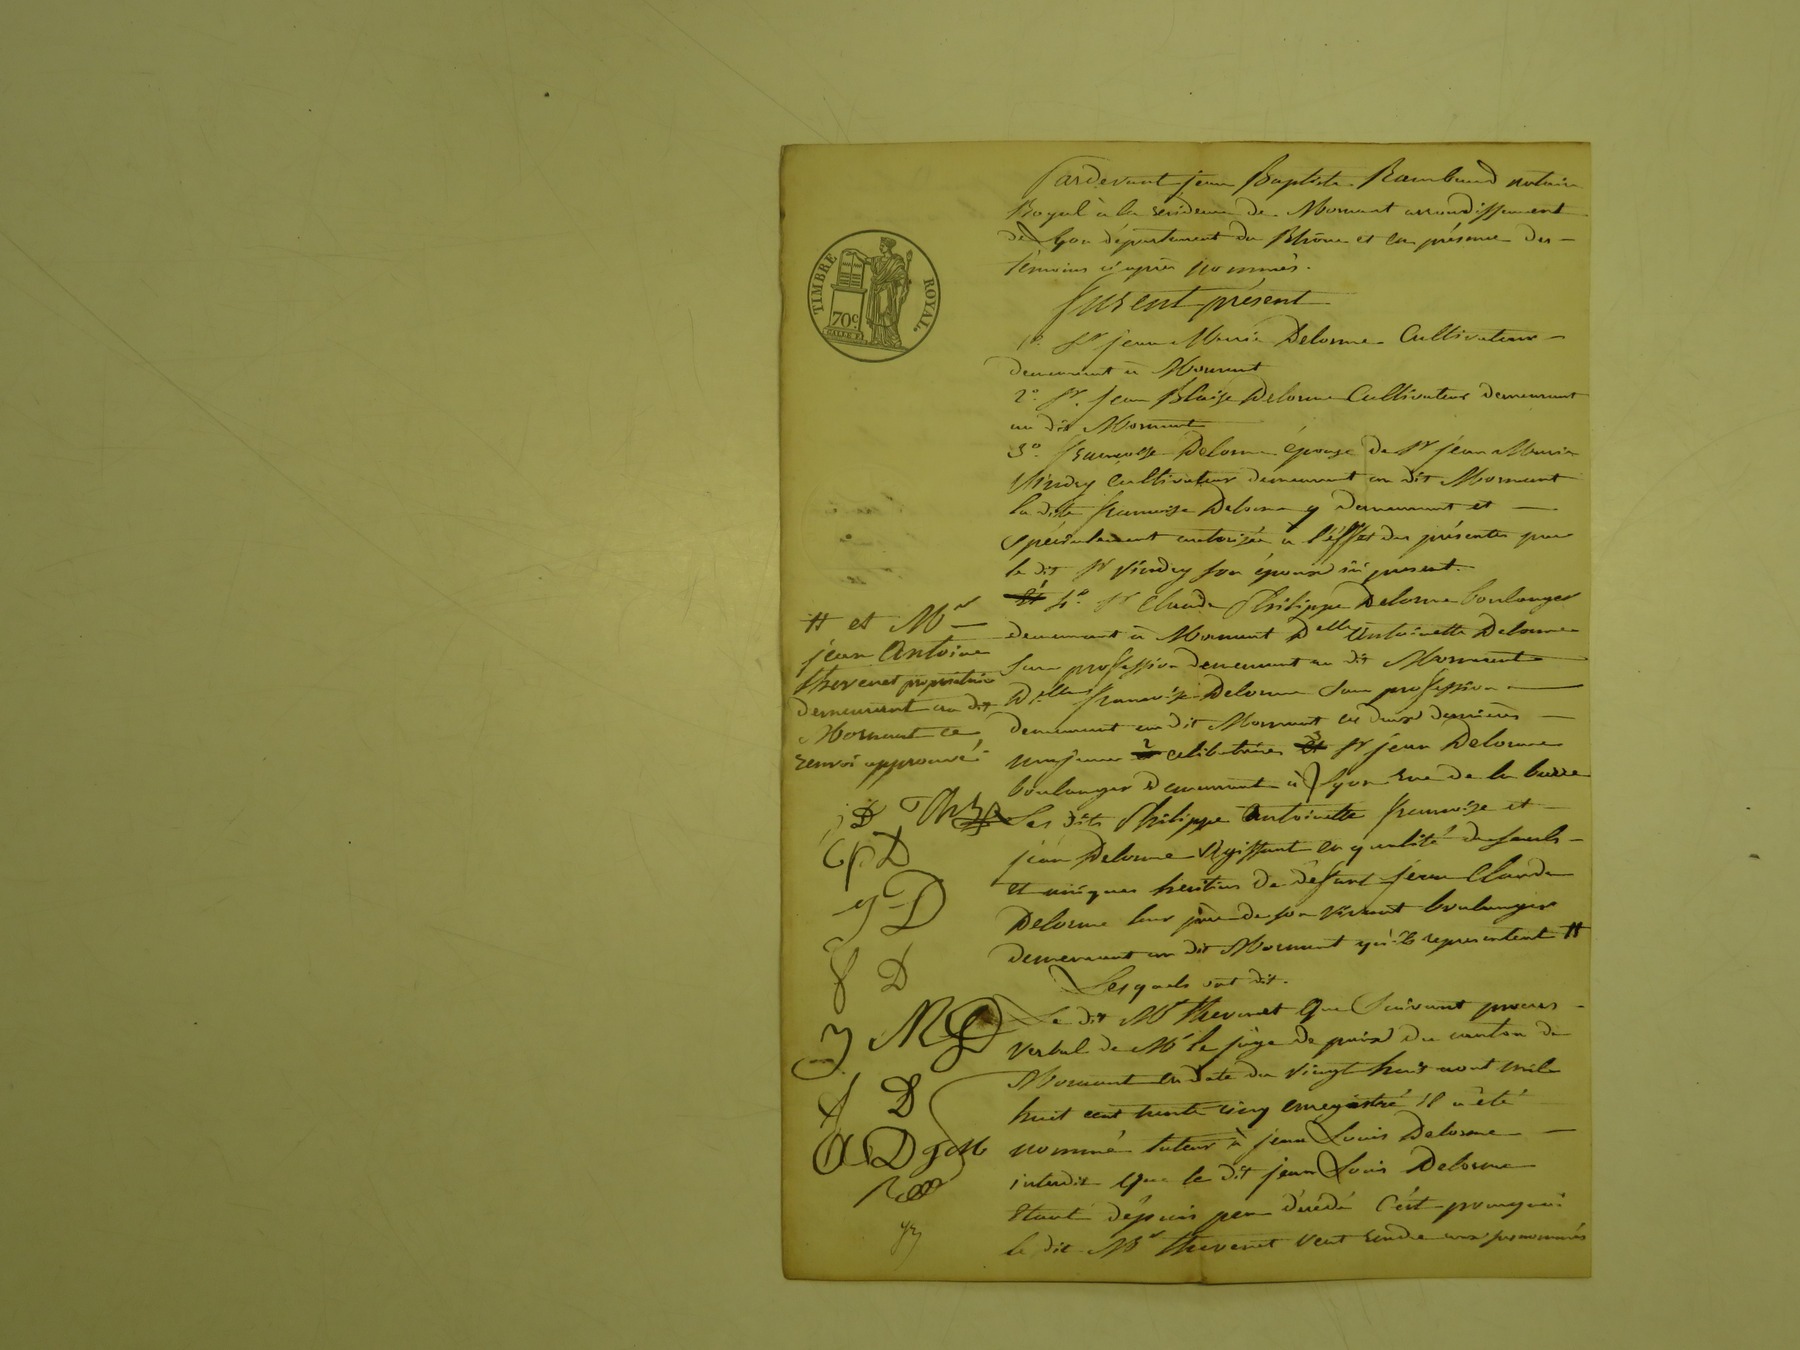 TIMBRE ROYAL.
70c
Pardevant jean Baptiste Rambaud notaire
Royal à la residence de Mornant arrondissement
de Lyon département du Rhône et en présence des
témoins ci après nommés.
furent présent
1º. Sr jean Marie Delorme Cultivateur
demeurant à Mornant
2º. Sr. jean Blaise Delorme Cultivateur demeurant
au dit Mornant
3º. françoise Delorme épouse de Sr jean Marie
Vindry cultivateur demeurant au dit Mornant
la dite françoise Delorme y demeurant et
spécialement autorisée à l'éffet des présentes par
le dit Sr Vindry son époux ici present.
Et 4º. Sr Claude Philippe Delorme boulanger
demeurant à Mornant Delle Antoinette Delorme
sans proffession demeurant au dit Mornant
Delle françoise Delorme sans proffession
demeurant au dit Mornant ces deux dernières
majeures celibataires et Sr jean Delorme
boulanger demeurant à Lyon rue de la barre
Les dits Philippe Antoinette françoise et
jean Delorme Agissant en qualité de seuls
et uniques heritiers de défunt jean Claude
Delorme leur père de son vivant boulanger
demeurant au dit Mornant qu'ils representent #
Lesquels ont dit.
Le dit Mr thevenet Que Suivant proces
verbal de Mr le juge de paix du canton de
Mornant en date du vingt huit aout mil
huit cent trente cinq enregistré il a été
nommé tuteur à jean Louis Delorme
interdit Que le dit jean Louis Delorme
étant dépuis peu décédé C'est pourquoi
le dit Mr thevenet veut rendre aux susnommés
# et Mr
jean Antoine
thevenet propriétaire
demeurant au dit
Mornant ce
renvoi approuvé
J D Th
C p D
g D
f D
J M D
f D
A D